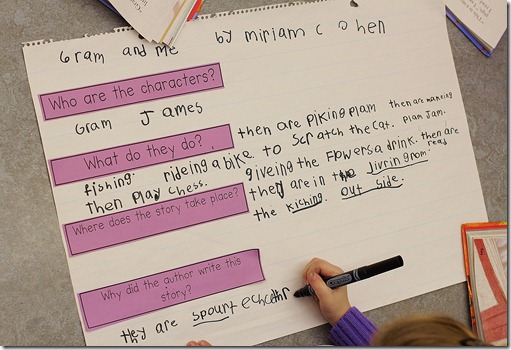 Gram and me by miriam c ohen
Who are the characters?
Gram James
What do they do?
then are piking plam then are makeing
fishing. rideing a bike. to Scratch the cat. plam Jam.
then Play chess. giveing the flowers a drink. then are
Where does the story take place?
they are in the livringrom. read
the kiching. out side.
Why did the author write this
story?
they are spount echcathr